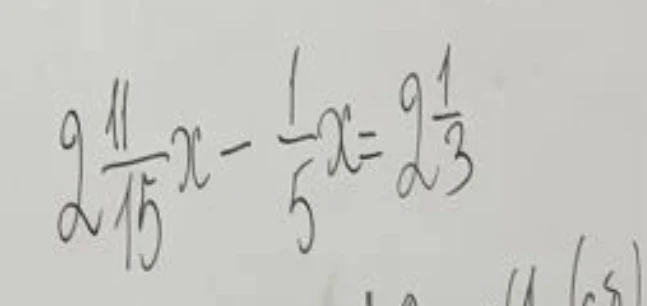 2 11/15 x - 1/5 x = 2 1/3